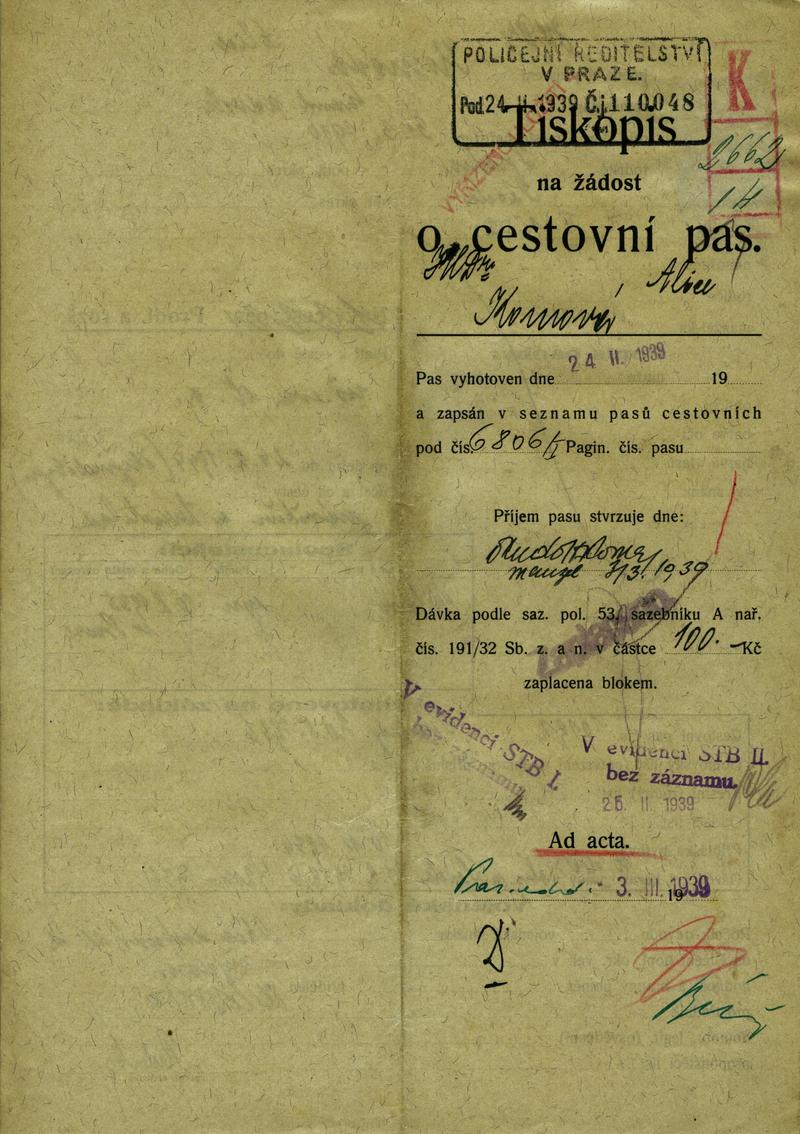 POLICEJNÍ ŘEDITELSTVÍ
V PRAZE.
Pod. 24. II. 1939 Č.j. 110.048
K
Tiskopis
2662
na žádost
14
o cestovní pas.
Alice
Pas vyhotoven dne 24 II. 1939 19
a zapsán v seznamu pasů cestovních
pod čís. 6806/ Pagin. čís. pasu
Příjem pasu stvrzuje dne:
3/3 1939
Dávka podle saz. pol. 53, sazebníku A nař.
čís. 191/32 Sb. z. a n. v částce 100.- Kč
zaplacena blokem.
V evidenci STB I.
V evidenci STB II.
bez záznamu.
25. II 1939
Ad acta.
3. III. 1939